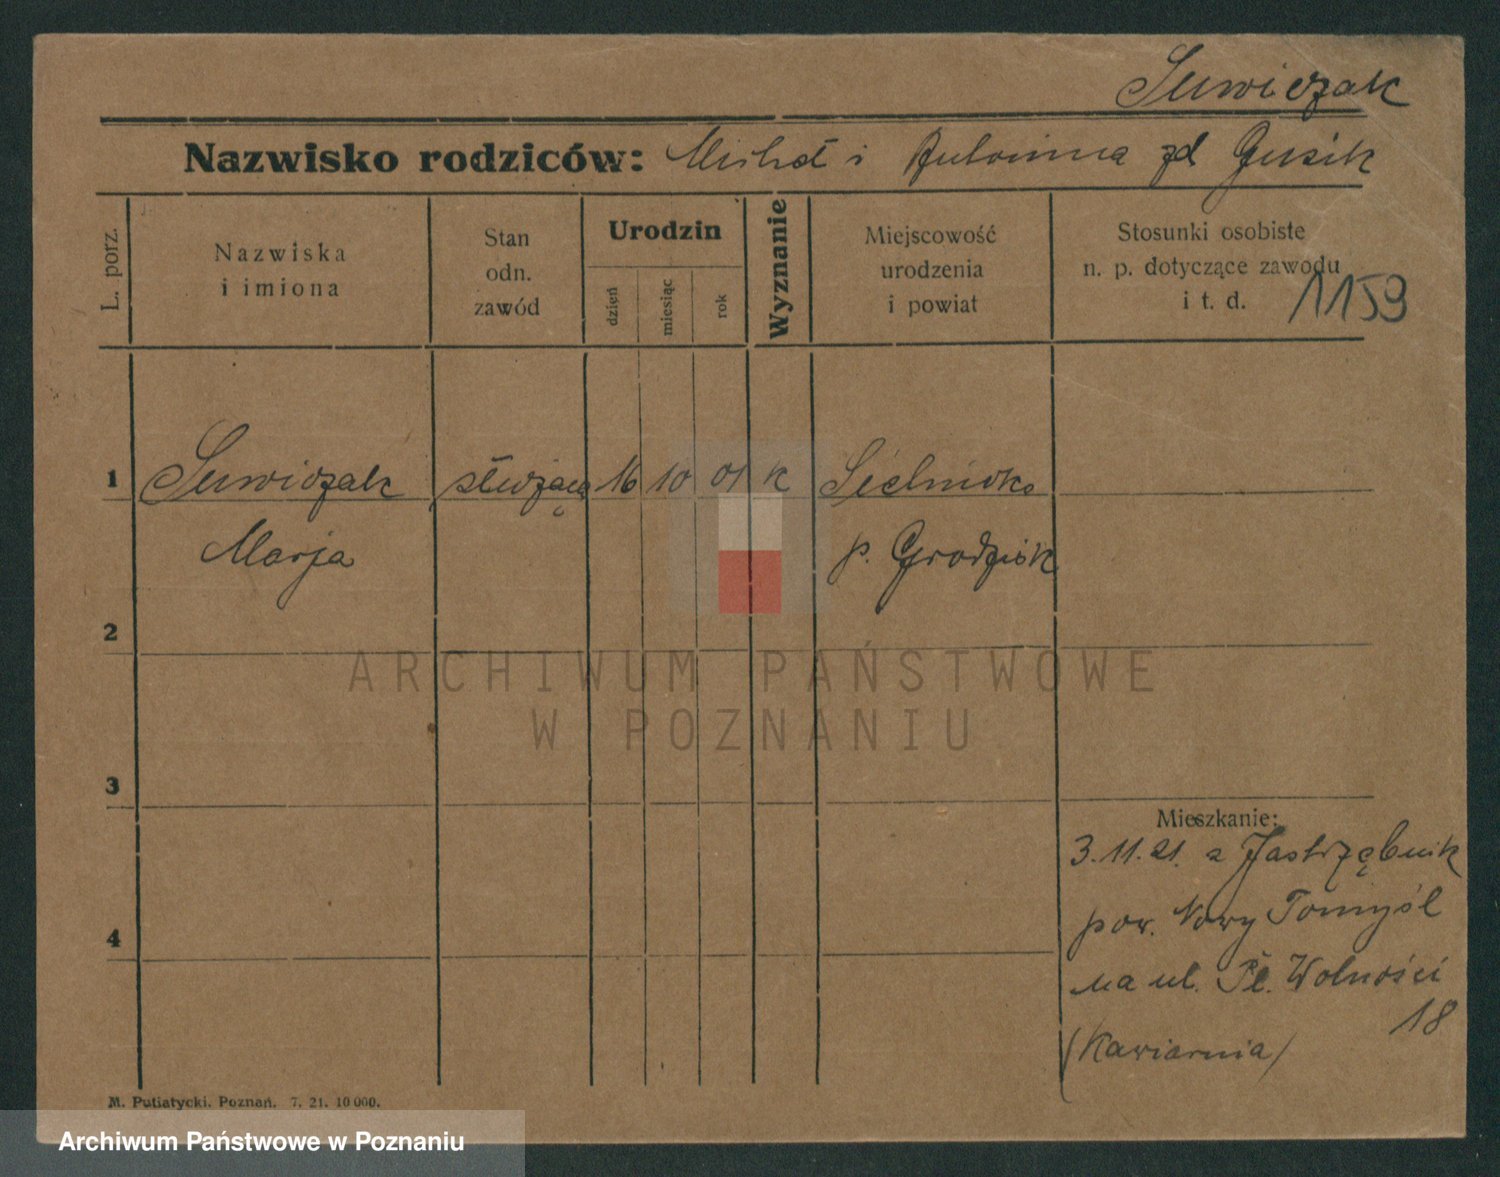 Suwiczak
Nazwisko rodziców: Michał i Antonina zd Gusik
L. porz.
Nazwiska
i imiona
Stan
odn.
zawód
Urodzin
dzień
miesiąc
rok
Wyznanie
Miejscowość
urodzenia
i powiat
Stosunki osobiste
n. p. dotyczące zawodu
i t. d.
1159
1 Suwiczak służąca 16 10 01 k Sielinko
Marja p. Grodzisk
2
3
4
Mieszkanie:
3.11.21. z Jastrzębnik
pow. Nowy Tomyśl
na ul. Pl. Wolności
18
(Kawiarnia)
M. Putiatycki. Poznań. 7. 21. 10 000.
ARCHIWUM PAŃSTWOWE
W POZNANIU
Archiwum Państwowe w Poznaniu